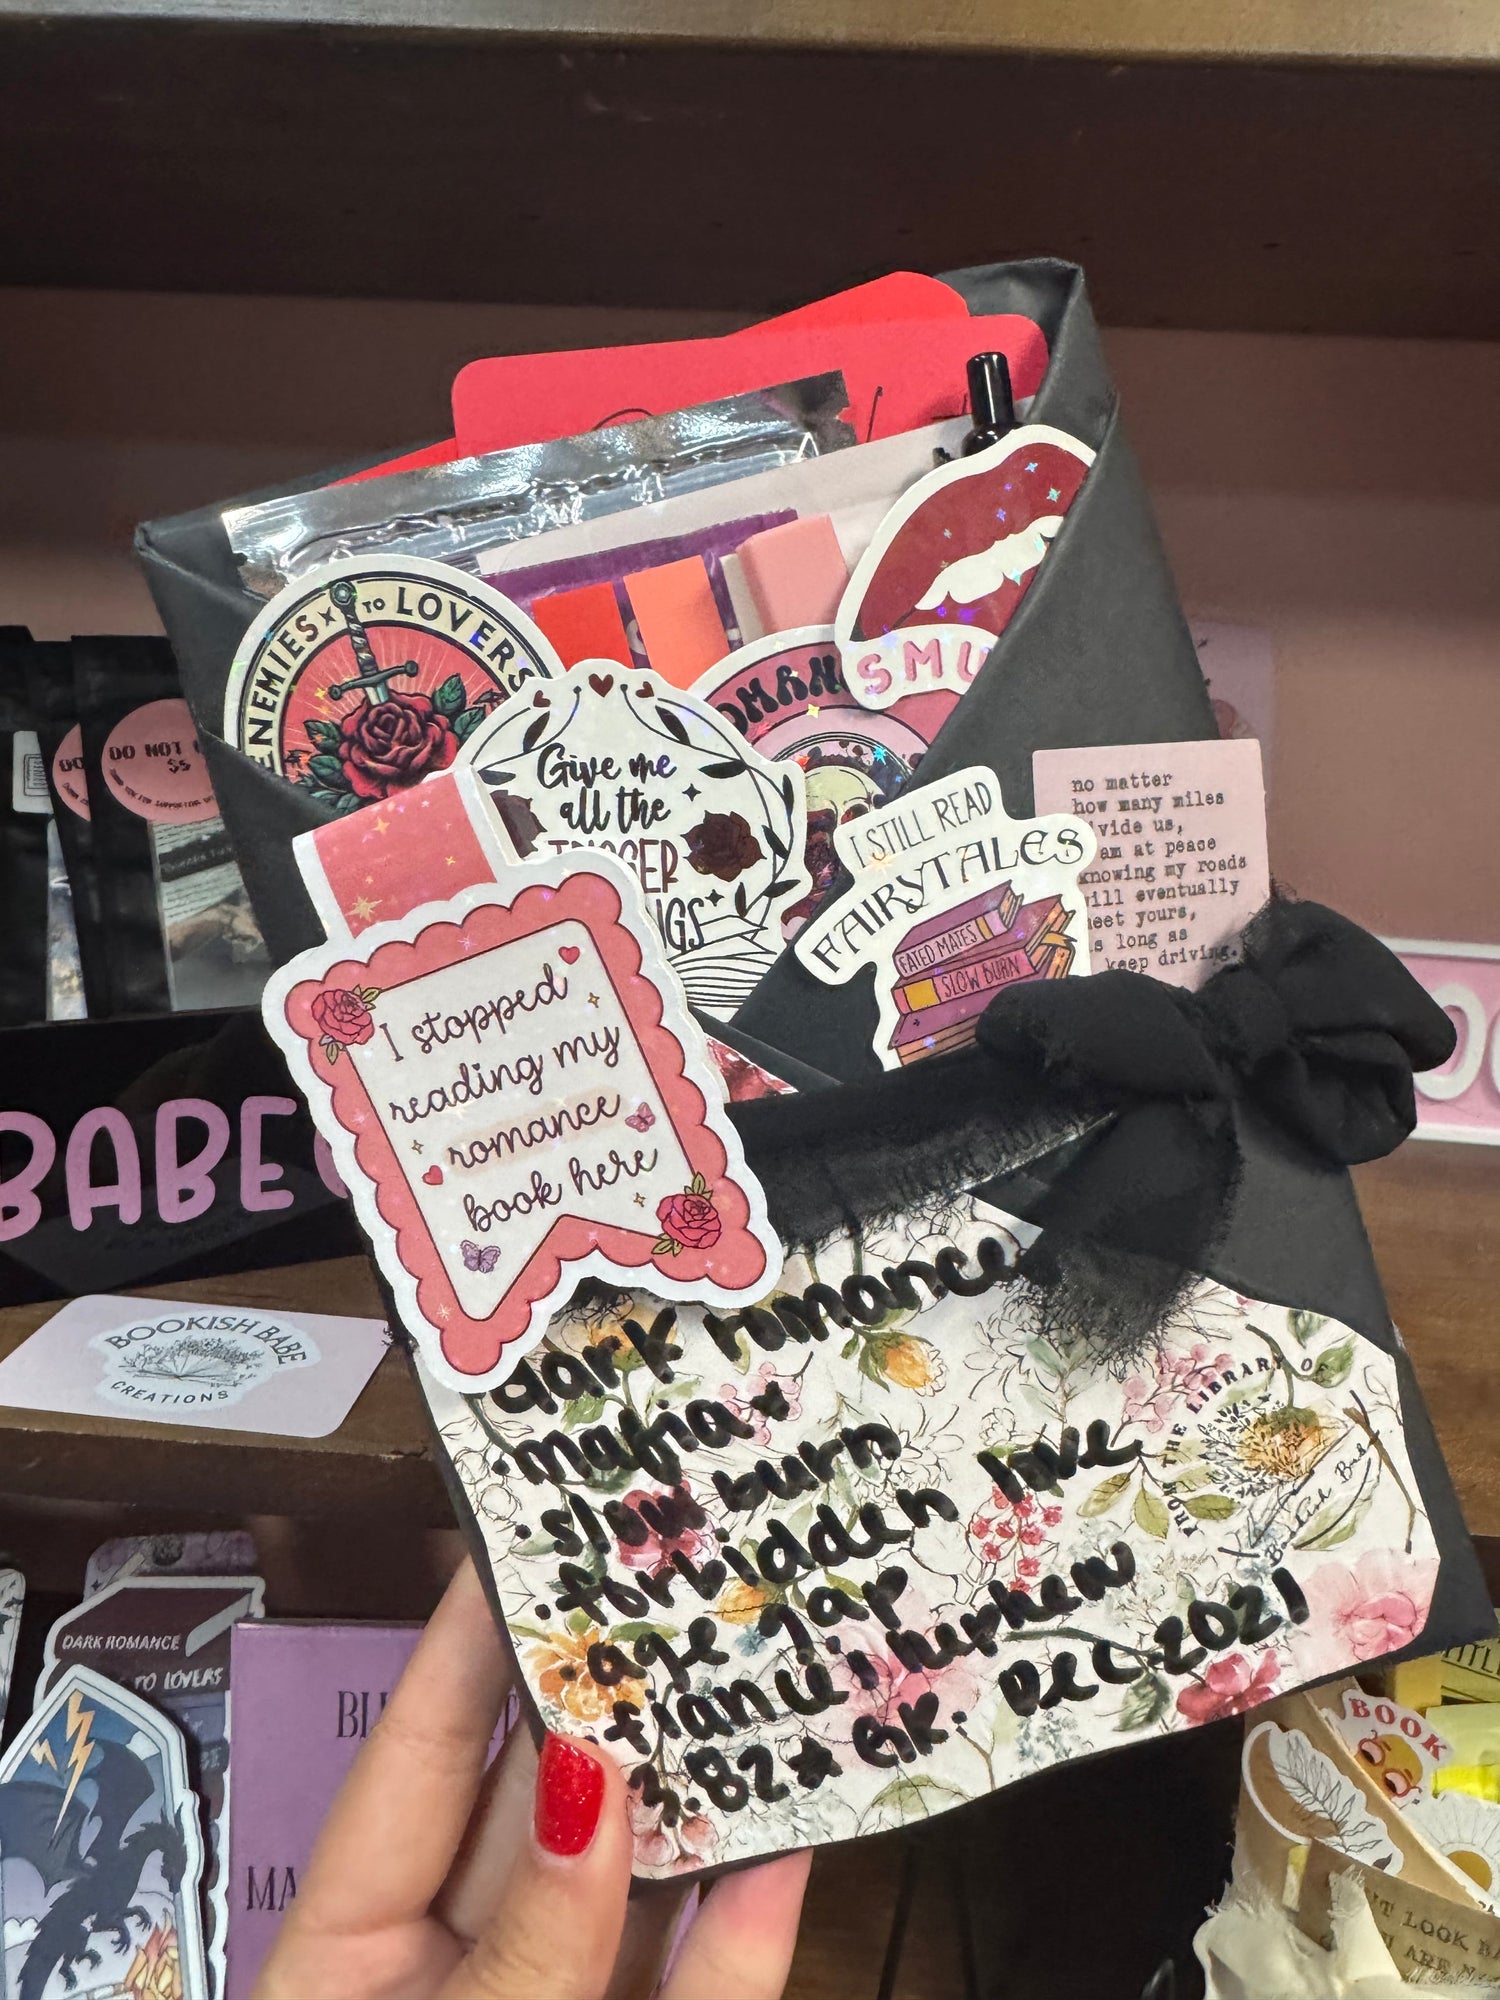 ENEMIES TO LOVERS
SMU
OMAN
Give me
all the
I STILL READ
FAIRYTALES
FATED MATES
SLOW BURN
no matter
how many miles
vide us,
am at peace
knowing my roads
ill eventually
eet yours,
s long as
keep driving.
I stopped
reading my
romance
book here
DO NOT
$5
BABE
BOOKISH BABE
CREATIONS
dark romance
•mafia
•slow burn
•forbidden love
•age gap
•fiancé's nephew
3.82★ GR. Dec. 2021
FROM THE LIBRARY OF
DARK ROMANCE
TO LOVERS
BL
MA
BOOK
T LOOK BA
ARE N